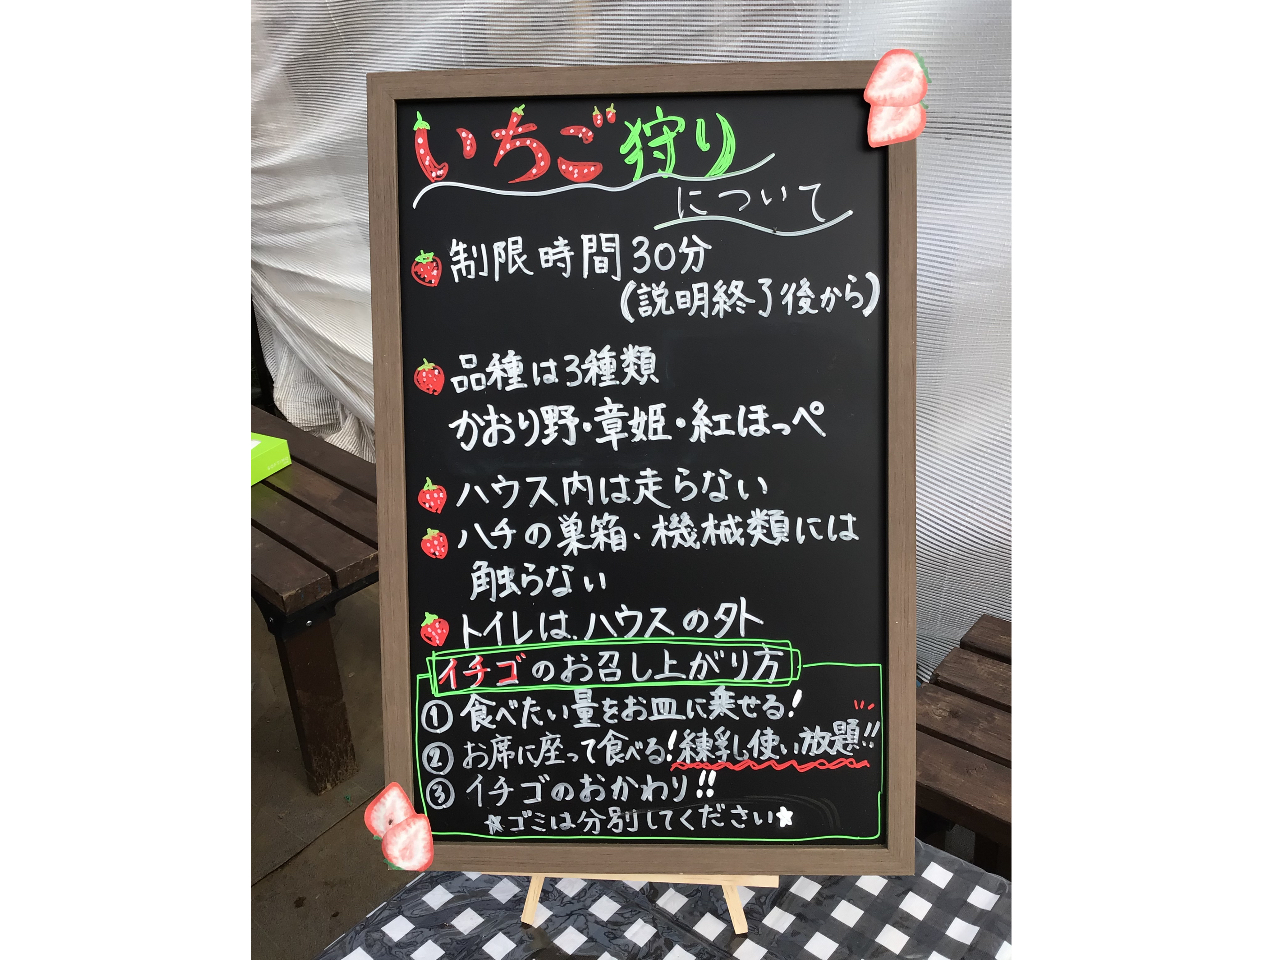 いちご狩り
について
制限時間30分
(説明終了後から)
品種は3種類
かおり野・章姫・紅ほっぺ
ハウス内は走らない
ハチの巣箱・機械類には
触らない
トイレは、ハウスの外
イチゴのお召し上がり方
① 食べたい量をお皿に乗せる!
② お席に座って食べる!練乳使い放題!!
③ イチゴのおかわり!!
☆ゴミは分別してください☆